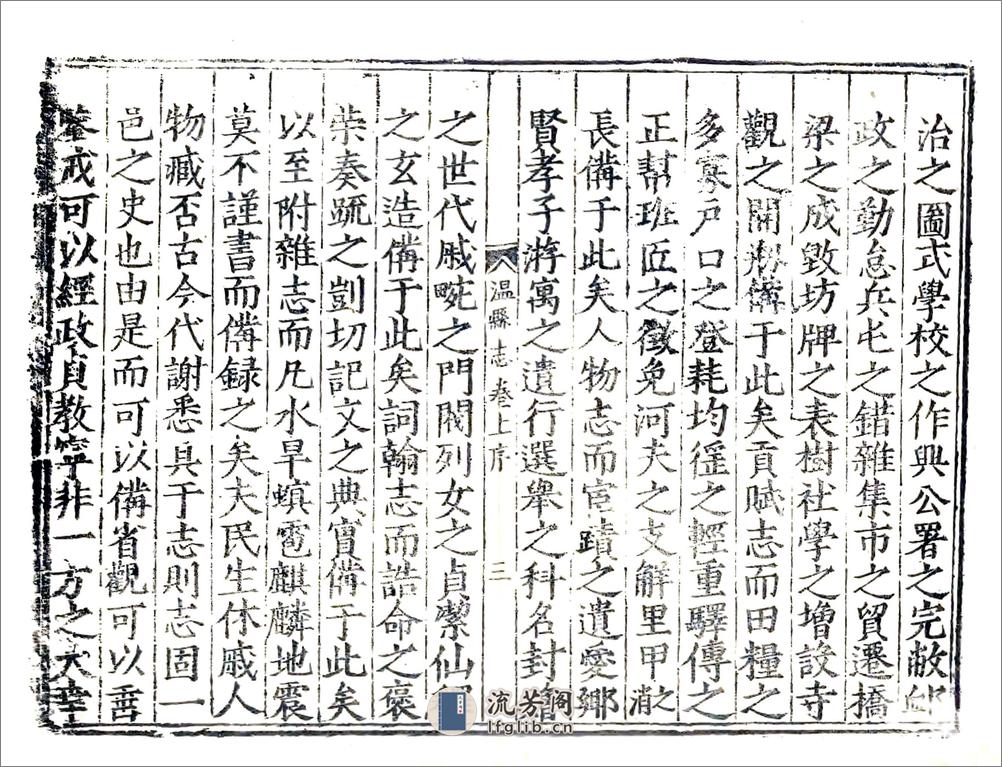 治之圖式學校之作興公署之完敝郵
政之勤怠兵屯之錯雜集市之貿遷橋
梁之成毀坊牌之表樹社學之增設寺
觀之開剏備于此矣貢賦志而田糧之
多寡戶口之登耗均徭之輕重驛傳之
正幫班匠之徵免河夫之支解里甲之消
長備于此矣人物志而宦蹟之遺愛鄉
賢孝子游寓之遺行選舉之科名封
溫縣志卷上序
三
之世代戚畹之門閥列女之貞潔仙
之玄造備于此矣詞翰志而誥命之褒
榮奏疏之剴切記文之典實備于此矣
以至附雜志而凡水旱蝗雹麒麟地震
莫不謹書而備錄之矣夫民生休戚人
物臧否古今代謝悉具于志則志固一
邑之史也由是而可以備省觀可以垂
鑒戒可以經政貞教寧非一方之大幸
流芳閣
lfglib.cn